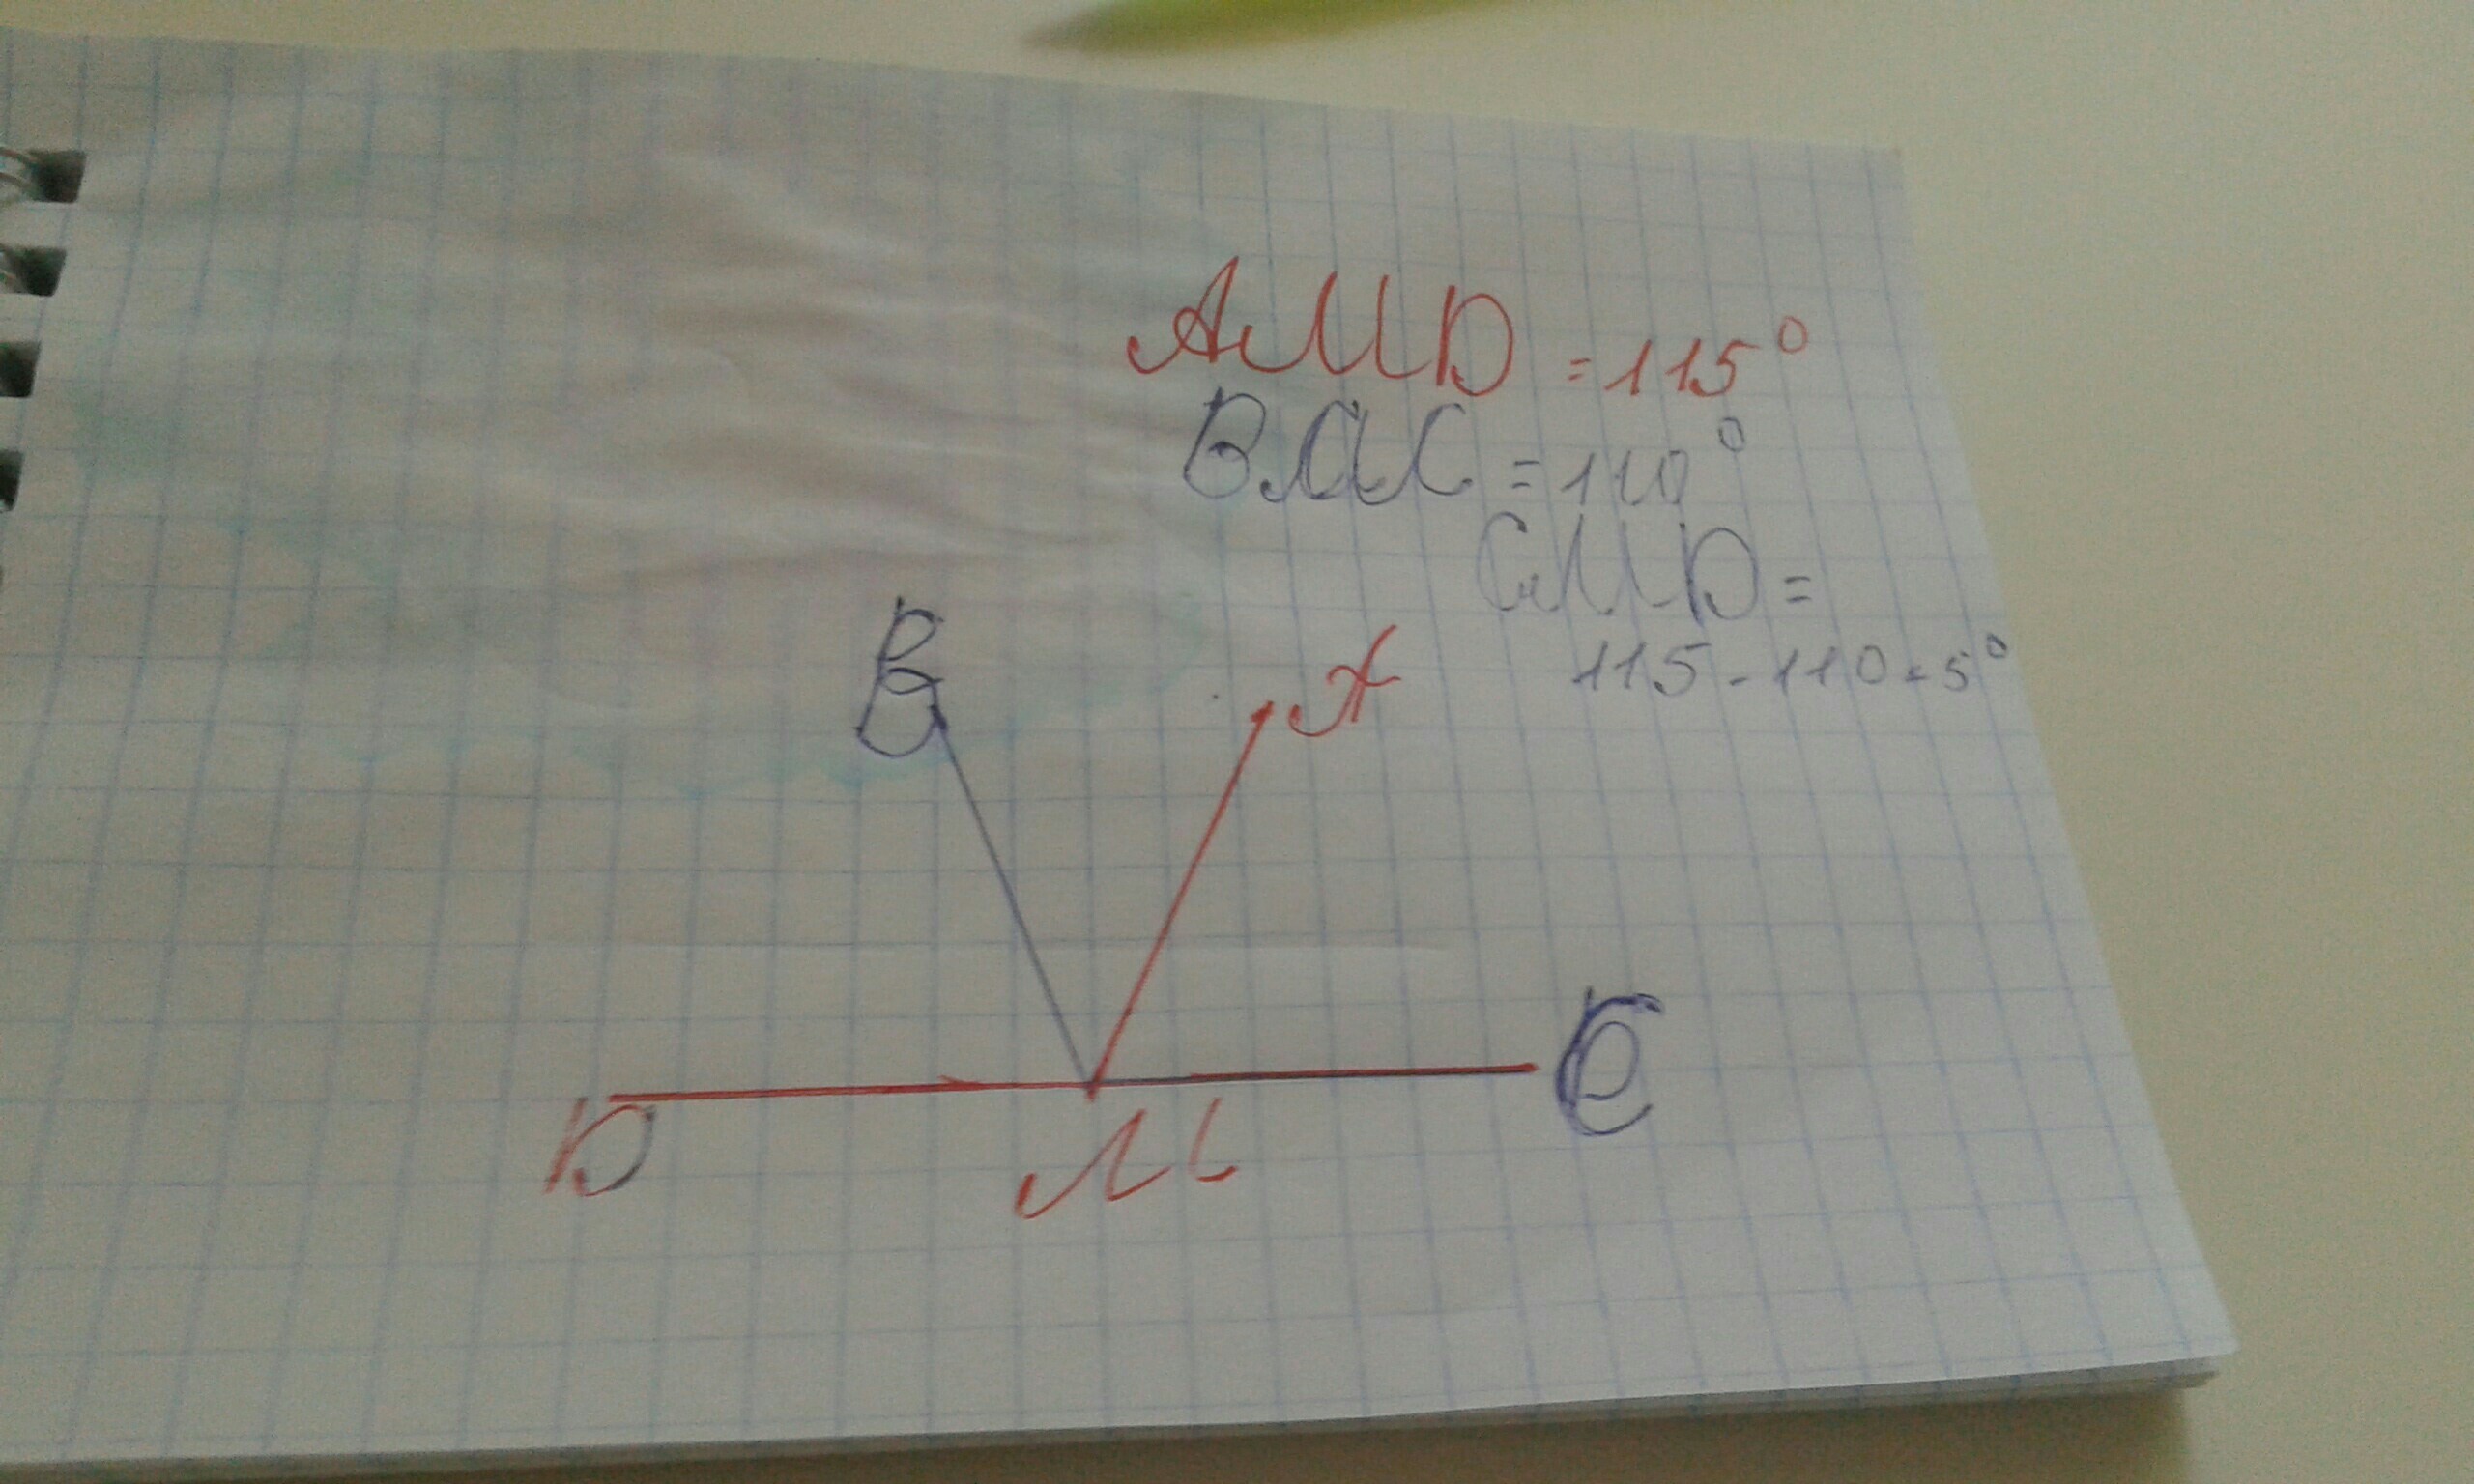 AMD = 115°
BMC = 110°
CMD =
115 - 110 = 5°
B
A
C
D
M